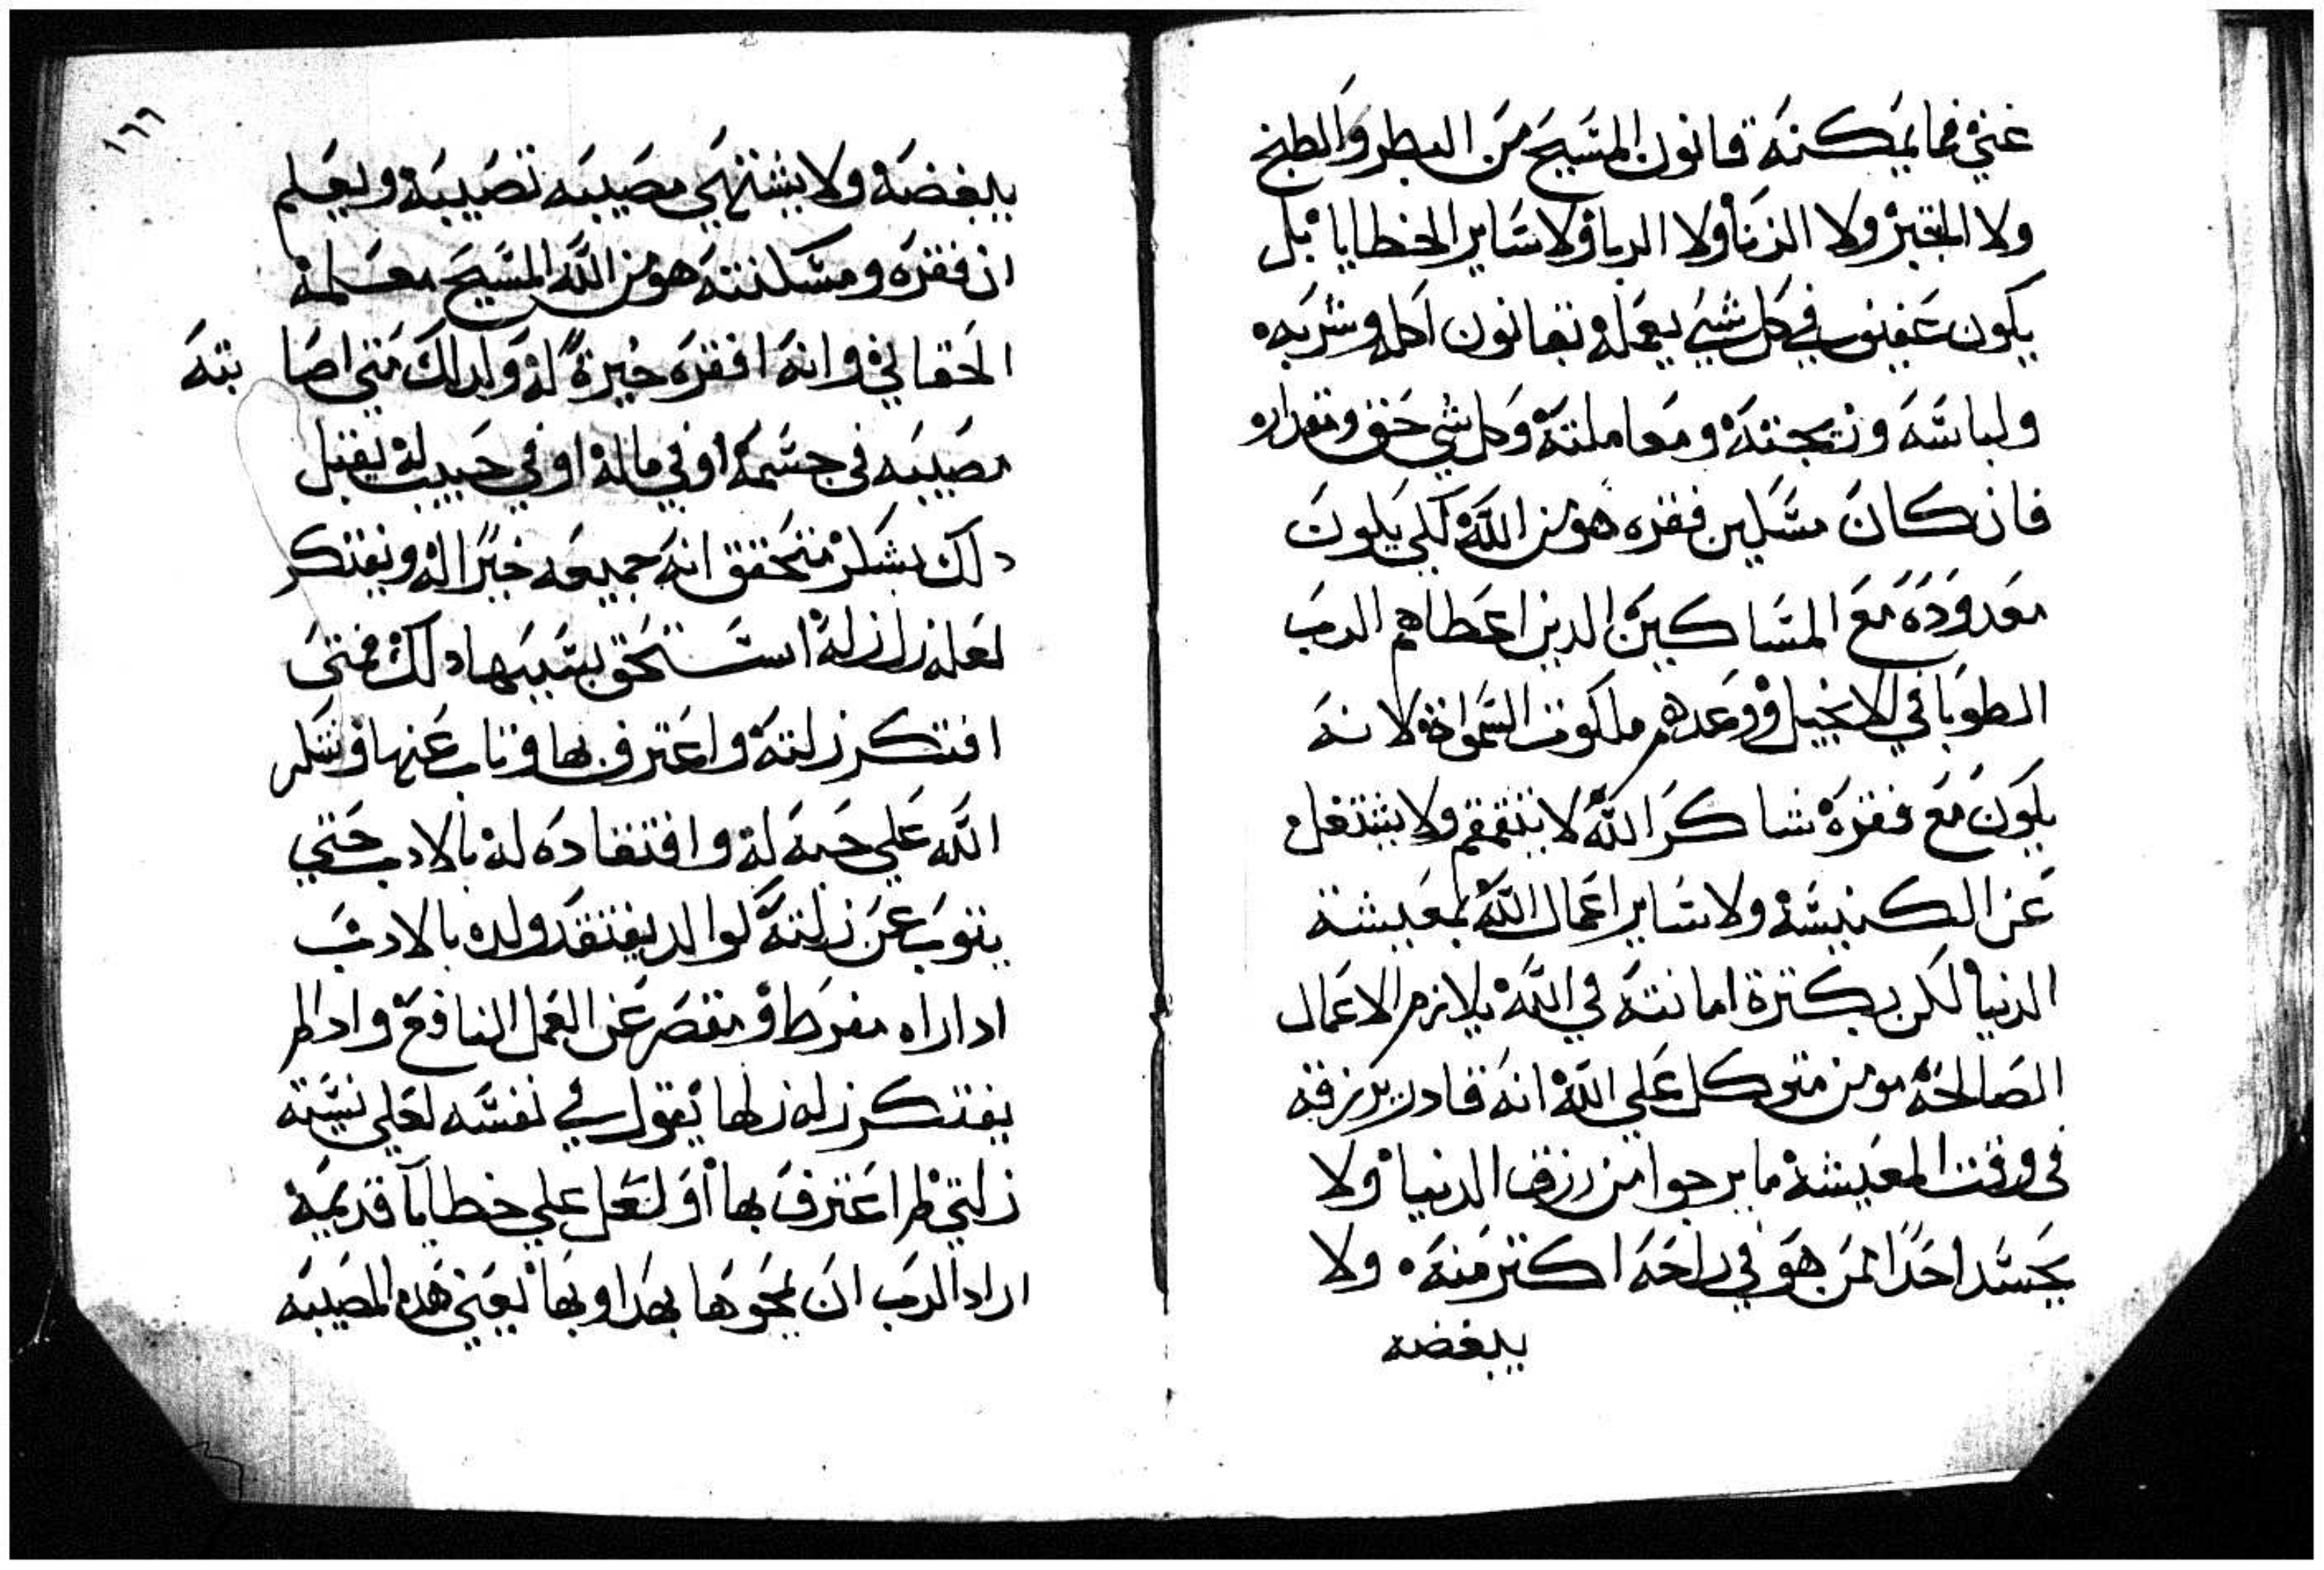 غني فما يمكنه قانون المسيح من البطر والطبخ
ولا التخبز ولا الزنا ولا الربا ولا ساير الخطايا بل
يكون عفيف في كل شي يعمله بقانون اكله وشربه
ولباسه وزيجته ومعاملته وكل شي حق ومقداره
فان كان مسكين فقره هو من الله لكي يكون
معدوده مع المساكين الدين اعطاهم الرب
الطوبا في الانجيل ووعدهم ملكوت السموات لانه
يكون مع فقره شاكر الله لا يتقمقم ولا يشتغل
عن الكنيسه ولا ساير اعمال الله لمعيشة
الدنيا لكن بكترة امانته في الله يلازم الاعمال
الصالحه مومن متوكل علي الله انه قادر يرزقه
في وقت المعيشه ما يرجوا من رزق الدنيا ولا
يحسد احدا ممن هو في راحه اكتر منه ولا
يبغضه
١٦٦
يبغضه ولا يشتهي مصيبه تصيبه ويعلم
ان فقره ومسكنته هو من الله المسيح معلمه
الحقاني وانه افقره خيرة له ولدلك متي اصابته
مصيبه في جسمه او في ماله او في حبيب له يقبل
دلك بشكر متحقق انه جميعه خيرا له ويفتكر
لعله زل زله استحق بسببها دلك فمتي
افتكر زلته واعترف بها وتاب عنها وشكر
الله علي حبه له وافتقاده له بالادب حتي
يتوب عن زلته كوالد يفتقد ولده بالادب
ادا راه مفرط او مقصر عن العمل النافع وادا لم
يفتكر زله زلها يقول في نفسه لعلي نسيته
زلتي لم اعترف بها او لعل علي خطايا قديمه
اراد الرب ان يمحوها بهدا وبها يعني هده المصيبه